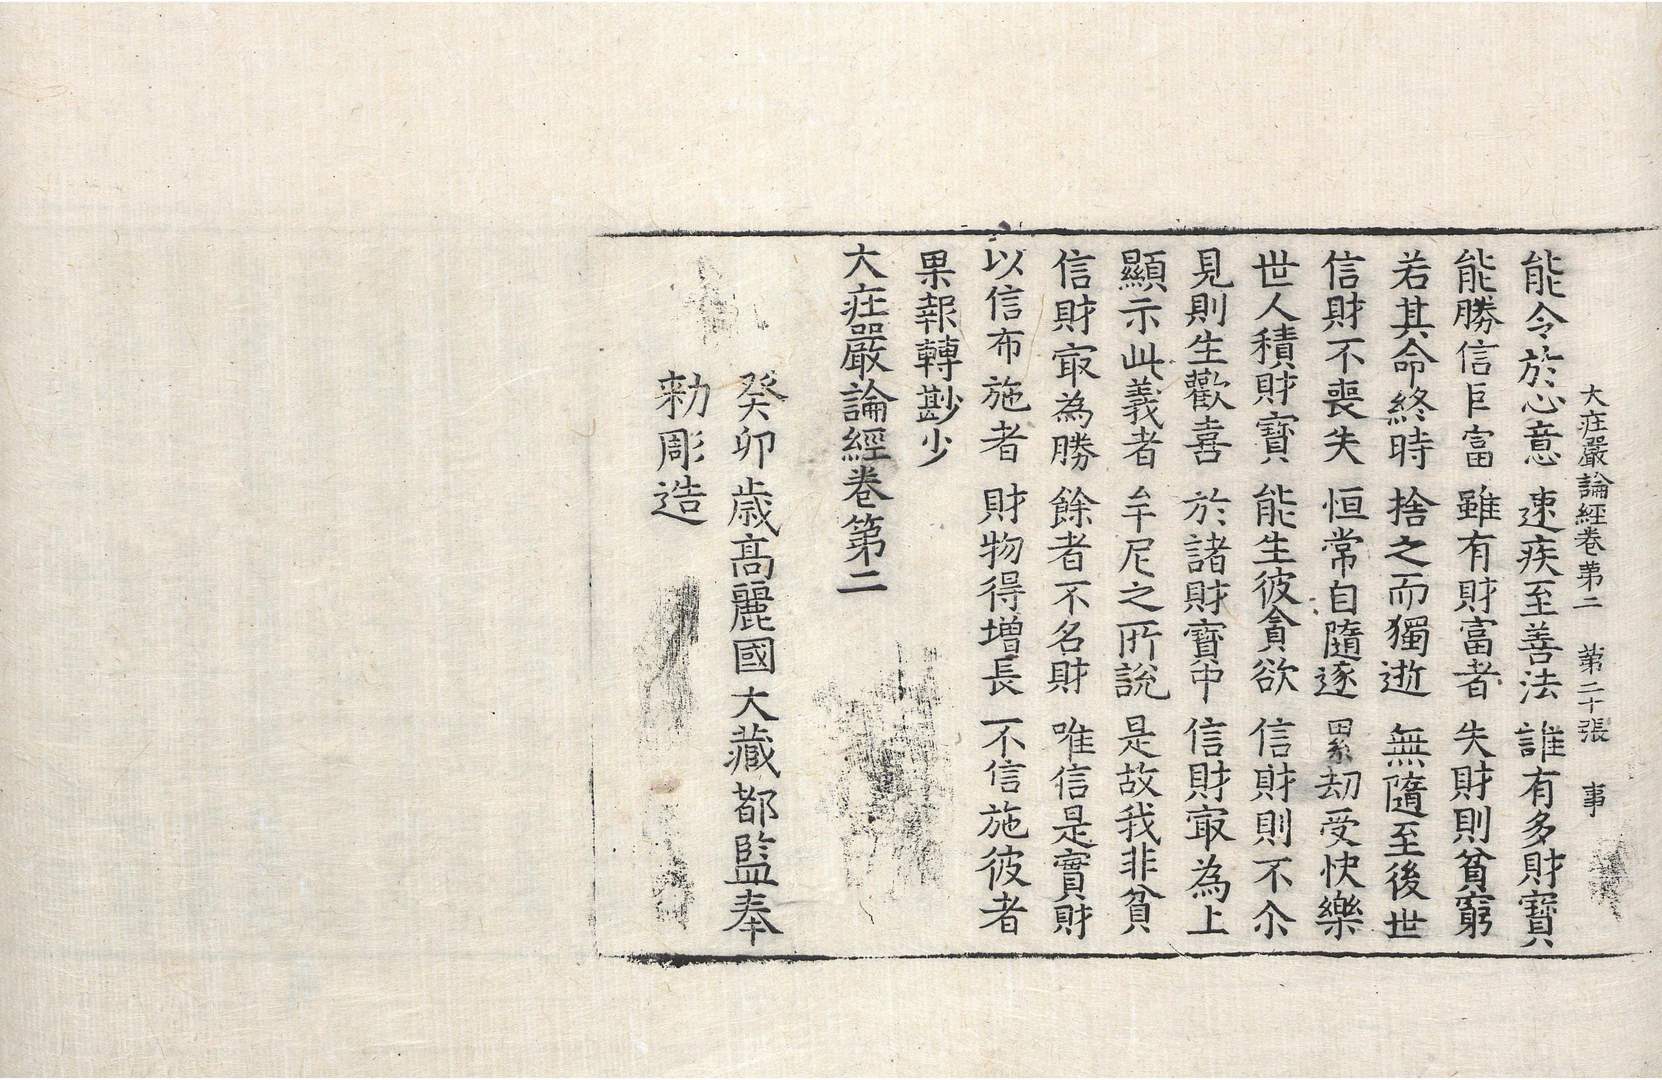 大庄嚴論經卷第二　第二十張　事
能令於心意　速疾至善法　誰有多財寶
能勝信巨富　雖有財富者　失財則貧窮
若其命終時　捨之而獨逝　無隨至後世
信財不喪失　恒常自隨逐　累劫受快樂
世人積財寶　能生彼貪欲　信財則不尒
見則生歡喜　於諸財寶中　信財㝡為上
顯示此義者　牟尼之所說　是故我非貧
信財㝡為勝　餘者不名財　唯信是實財
以信布施者　財物得增長　不信施彼者
果報轉尠少
大庄嚴論經卷第二
癸卯歳高麗國大藏都監奉
勑彫造